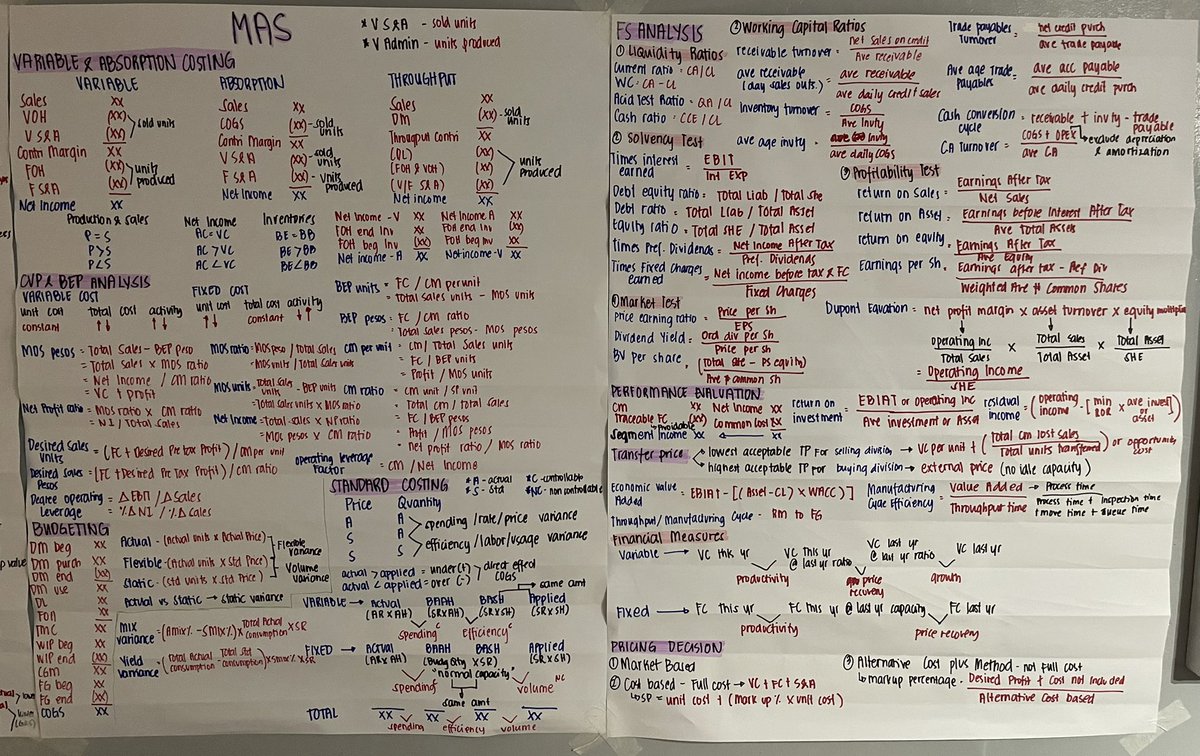 MAS
* V S&A - sold units
* V Admin - units produced
VARIABLE & ABSORPTION COSTING
VARIABLE
Sales XX
VOH (XX)
V S&A (XX) > sold units
Contri Margin XX
FOH (XX)
F S&A (XX) > units produced
Net Income XX
ABSORPTION
Sales XX
COGS (XX) - sold units
Contri Margin XX
V S&A (XX) - sold units
F S&A (XX) - units produced
Net Income XX
THROUGHPUT
Sales XX
DM (XX) - sold units
Throughput Contri XX
(DL) (XX)
(FOH & VOH) (XX)
(V/F S&A) (XX) > units produced
Net income XX
Production & Sales
P=S
P>S
P<S
Net Income
AC=VC
AC>VC
AC<VC
Inventories
BE=BB
BE>BB
BE<BB
Net Income - V XX
FOH end Inv XX
FOH beg Inv (XX)
Net income - A XX
Net Income A XX
FOH end inv (XX)
FOH beg inv XX
Net income - V XX
CVP & BEP ANALYSIS
VARIABLE COST
unit cost total cost activity
constant ↑↓ ↑↓
FIXED COST
unit cost total cost activity
↑↓ constant ↓↑
BEP units = FC / CM per unit
= Total sales units - MOS units
BEP pesos = FC / CM ratio
= Total sales pesos - MOS pesos
MOS pesos = Total Sales - BEP peso
= Total sales x MOS ratio
= Net Income / CM ratio
= VC + profit
MOS ratio = MOS peso / Total Sales
= MOS units / Total Sales units
MOS units = Total Sales units - BEP units
= Total sales units x MOS ratio
CM per unit = CM / Total Sales units
= FC / BEP units
= Profit / MOS units
CM ratio = CM unit / SP unit
= Total CM / total Sales
= FC / BEP pesos
= Profit / MOS pesos
= net profit ratio / MOS ratio
Net Profit ratio = MOS ratio x CM ratio
= NI / Total Sales
Net Income = Total sales x NP ratio
= MOS pesos x CM ratio
Desired Sales units = (FC + Desired Pre tax Profit) / CM per unit
Desired Sales Pesos = (FC + Desired Pre Tax Profit) / CM ratio
operating leverage factor = CM / Net Income
Degree operating leverage = Δ EBIT / Δ Sales
= %Δ NI / %Δ Sales
BUDGETING
DM beg XX
DM purch XX
DM end (XX)
DM use XX
DL XX
FOH XX
TMC XX
WIP beg XX
WIP end (XX)
CGM XX
FG beg XX
FG end (XX)
COGS XX
Actual - (Actual units x Actual Price)
Flexible variance
Flexible - (Actual units x Std Price)
Volume variance
Static - (Std units x Std Price)
Actual vs Static → Static variance
Mix variance = (Amix% - Smix%) x Total Actual consumption x SR
Yield variance = (Total Actual consumption - Total Std consumption) x Smix% x SR
STANDARD COSTING
* A - actual
* S - Std
* C - controllable
* NC - non controllable
Price Quantity
A A
S A > spending / rate / price variance
S S > efficiency / labor / usage variance
actual > applied = under (+)
actual < applied = over (-) > direct effect COGS
same amt
VARIABLE → Actual BAAH BASH Applied
(AR x AH) (SR x AH) (SR x SH) (SR x SH)
spending C efficiency C
FIXED → Actual BAAH BASH Applied
(AR x AH) (Budg Qty x SR) (SR x SH)
"normal capacity"
spending volume NC
same amt
TOTAL XX XX XX XX
spending efficiency volume
FS ANALYSIS
① Liquidity Ratios
Current ratio = CA / CL
WC = CA - CL
Acid Test Ratio = QA / CL
Cash ratio = CCE / CL
② Working Capital Ratios
receivable turnover = net sales on credit / Ave receivable
ave receivable (day sales outs.) = ave receivable / ave daily credit sales
Inventory turnover = COGS / Ave Invty
ave age invty = ave invty / ave daily COGS
Trade payables Turnover = net credit purch / ave trade payable
Ave age trade payables = ave acc payable / ave daily purch
Cash conversion cycle = receivable + invty - trade payable
CA Turnover = COGS + OPEX / ave CA → exclude depreciation & amortization
② Solvency Test
Times interest earned = EBIT / Int Exp
Debt equity ratio = Total Liab / Total She
Debt ratio = Total Liab / Total Asset
Equity ratio = Total SHE / Total Asset
Times Pref. Dividends = Net Income After Tax / Pref. Dividends
Times Fixed Charges earned = Net Income before tax & FC / Fixed Charges
③ Profitability Test
return on Sales = Earnings After Tax / Net Sales
return on Asset = Earnings before Interest After Tax / Ave Total Assets
return on equity = Earnings After Tax / Ave Equity
Earnings per Sh = Earnings after tax - Pref Div / Weighted Ave # Common Shares
④ Market Test
Price earning ratio = Price per Sh / EPS
Dividend Yield = Ord div per Sh / Price per sh
BV per share = (Total SHE - PS equity) / Ave # common sh
Dupont Equation = net profit margin x asset turnover x equity multiplier
Operating Inc / Total Sales x Total Sales / Total Asset x Total Asset / SHE
= Operating Income / SHE
PERFORMANCE EVALUATION
CM XX
Traceable FC (XX)
Avoidable
Segment Income XX
Net Income XX
Common Cost XX
XX
return on investment = EBIAT or operating Inc / Ave investment or Asset
residual income = (operating income - [min ROR x ave invest or asset
Transfer price → lowest acceptable TP for selling division → VC per unit + (Total CM lost Sales / Total units transferred) or opportunity cost
→ highest acceptable TP for buying division → external price (no idle capacity)
Economic value Added = EBIAT - [(Asset - CL) x WACC)]
Manufacturing Cycle Efficiency = Value Added → Process time / Throughput time → Process time + Inspection time + move time + Queue time
Throughput / Manufacturing Cycle - RM to FG
Financial Measures
Variable → VC this yr VC This yr @ last yr ratio VC last yr @ last yr ratio VC last yr
productivity price recovery growth
Fixed → FC This yr FC this yr @ last yr capacity FC last yr
productivity price recovery
PRICING DECISION
① Market Based
② Cost based - Full cost → VC + FC + S&A
↳ SP = unit cost + (mark up % x unit cost)
③ Alternative Cost plus Method - not full cost
↳ markup percentage = Desired Profit + Cost not Included / Alternative Cost based